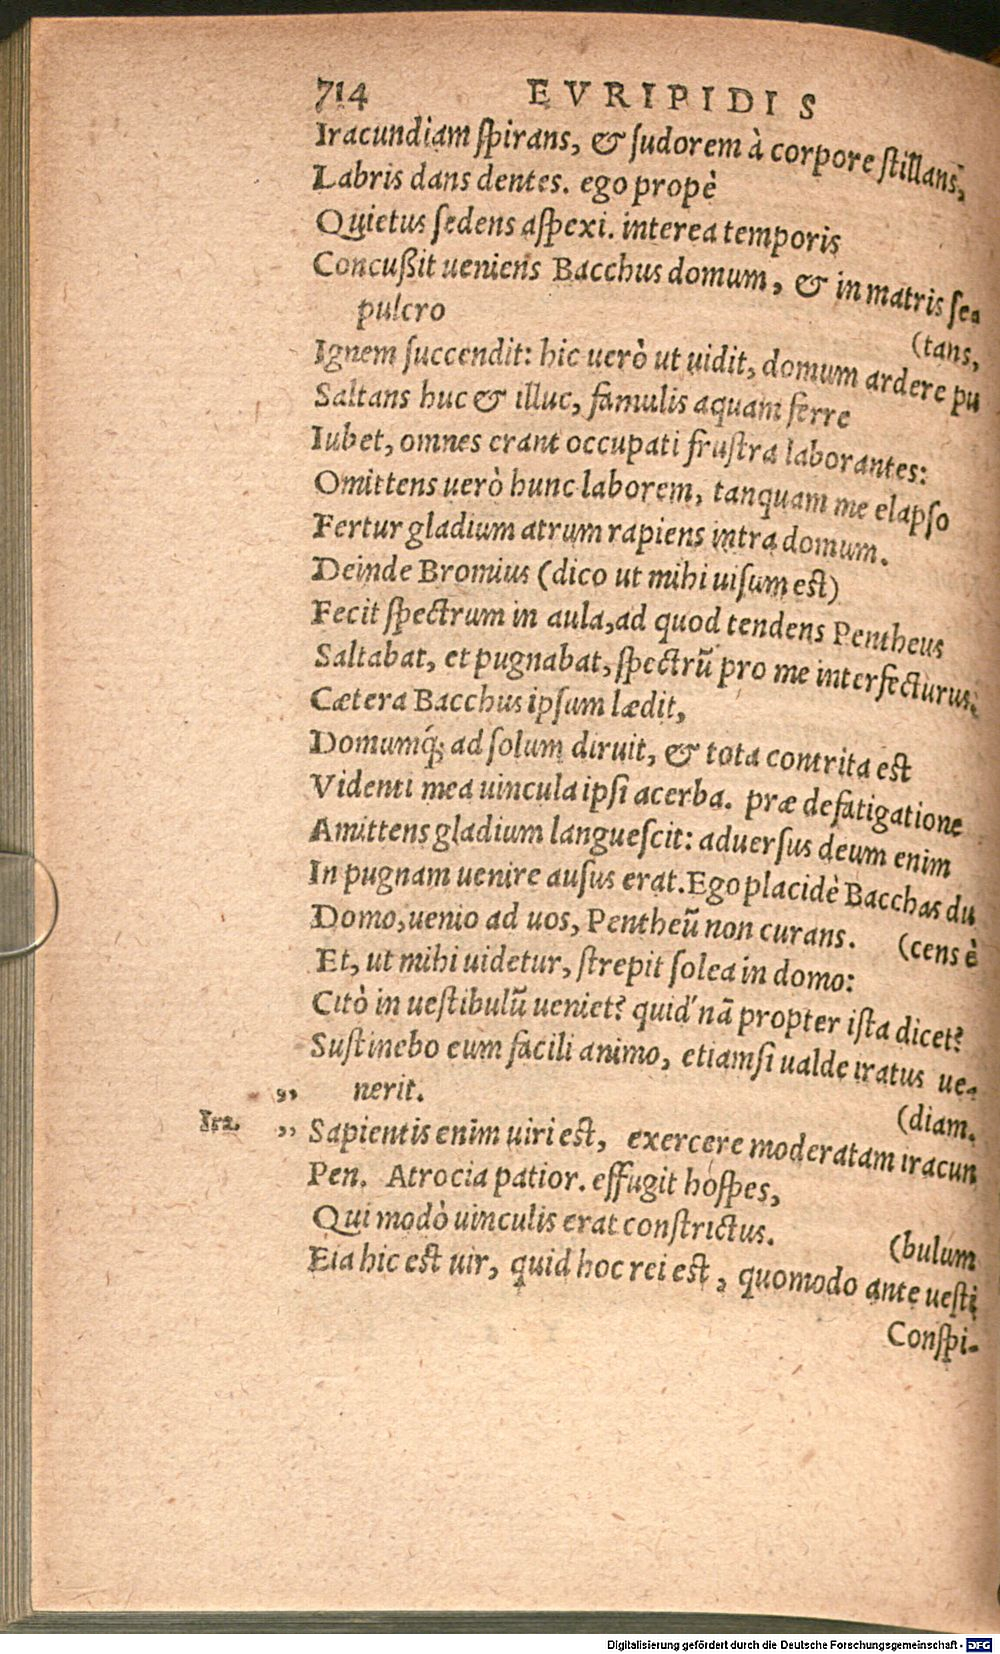 714 EVRIPIDIS
Iracundiam ſpirans, & ſudorem à corpore ſtillans,
Labris dans dentes. ego propè
Quietus ſedens aſpexi. interea temporis
Concußit ueniens Bacchus domum, & in matris ſe-
pulcro
(tans,
Ignem ſuccendit: hic uerò ut uidit, domum ardere pu
Saltans huc & illuc, famulis aquam ferre
Iubet, omnes erant occupati fruſtra laborantes:
Omittens uerò hunc laborem, tanquam me elapſo
Fertur gladium atrum rapiens intra domum.
Deinde Bromius (dico ut mihi uiſum eſt)
Fecit ſpectrum in aula, ad quod tendens Pentheus
Saltabat, et pugnabat, ſpectrũ pro me interfecturus.
Cætera Bacchus ipſum lædit,
Domumq́; ad ſolum diruit, & tota contrita eſt
Videnti mea uincula ipſi acerba. præ defatigatione
Amittens gladium langueſcit: aduerſus deum enim
In pugnam uenire auſus erat. Ego placidè Bacchas du
Domo, uenio ad uos, Pentheũ non curans. (cens è
Et, ut mihi uidetur, ſtrepit ſolea in domo:
Citò in ueſtibulũ ueniet? quid'nã propter iſta dicet?
Suſtinebo eum facili animo, etiamſi ualde iratus ue-
„ nerit.
(diam.
Ira. „ Sapientis enim uiri eſt, exercere moderatam iracun
Pen. Atrocia patior. effugit hoſpes,
Qui modò uinculis erat conſtrictus.
(bulum
Eia hic eſt uir, quid hoc rei eſt, quomodo ante ueſti
Conſpi-
Digitalisierung gefördert durch die Deutsche Forschungsgemeinschaft - DFG